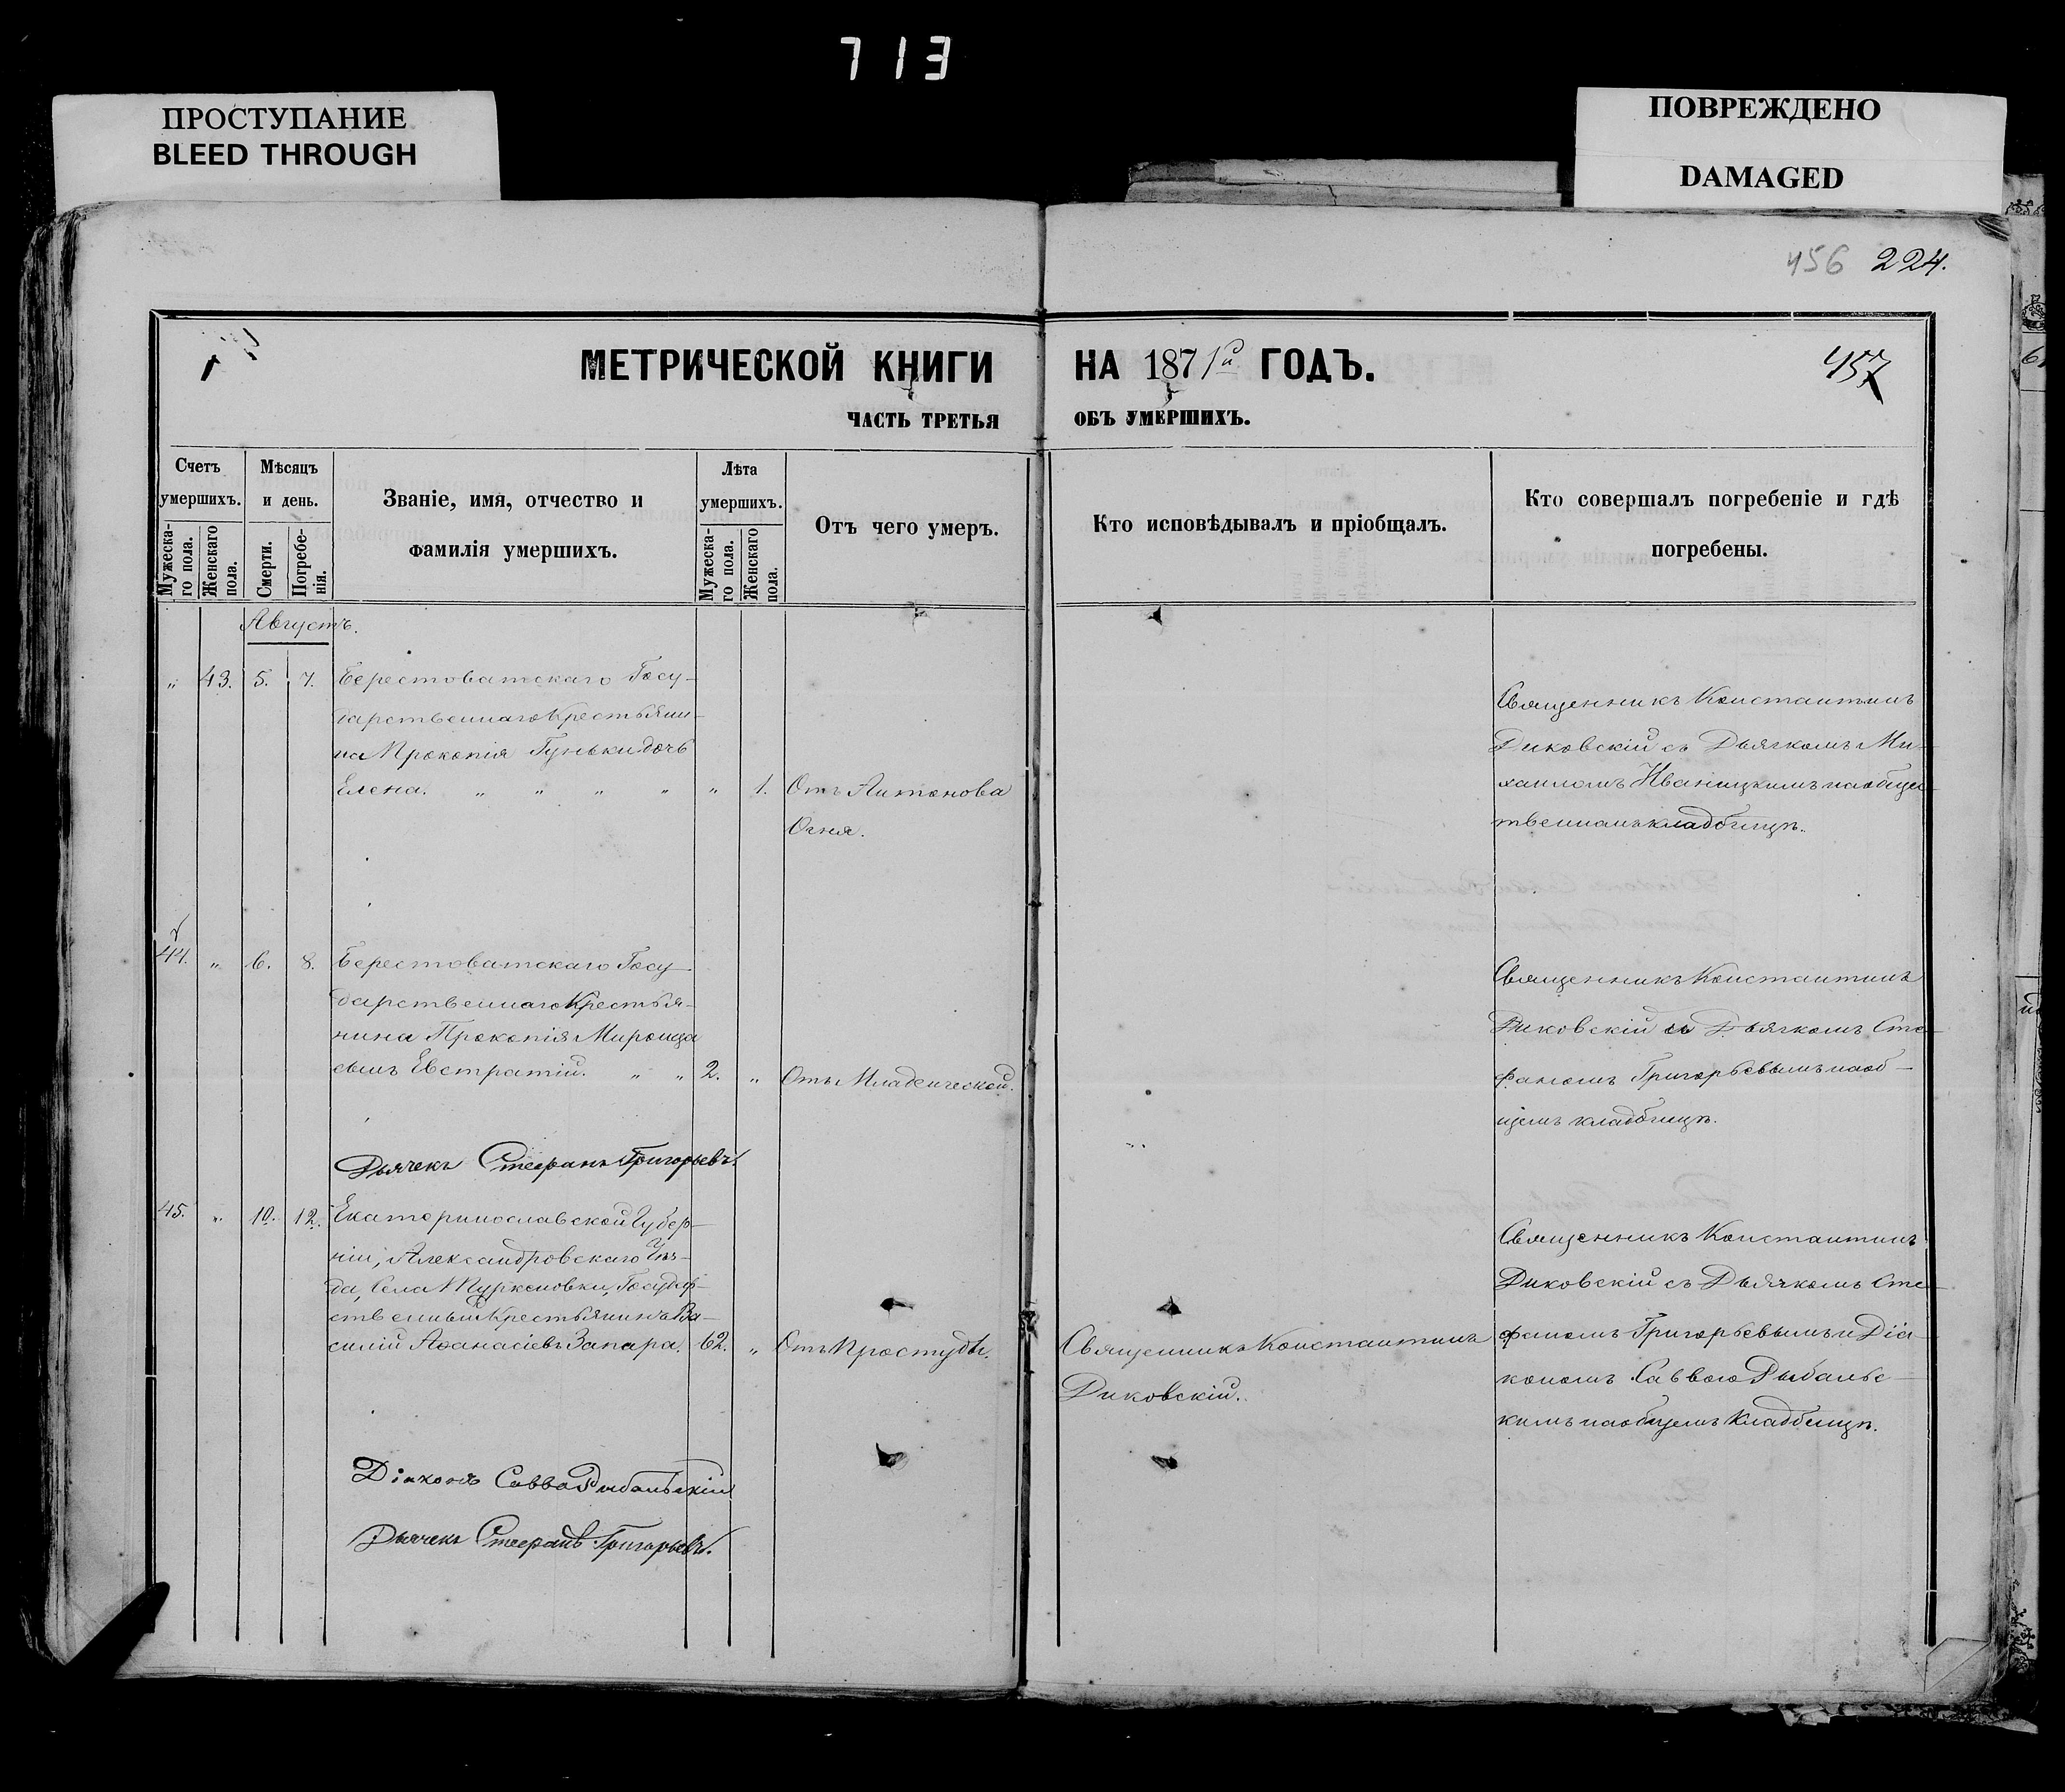 713
ПРОСТУПАНИЕ
BLEED THROUGH
ПОВРЕЖДЕНО
DAMAGED
456 224.
МЕТРИЧЕСКОЙ КНИГИ НА 1871й ГОДЪ.
457
ЧАСТЬ ТРЕТЬЯ ОБЪ УМЕРШИХЪ.
Счетъ умершихъ.
Мужеска-го пола.
Женскаго пола.
Мѣсяцъ и день.
Смерти.
Погребе-нія.
Званіе, имя, отчество и
фамилія умершихъ.
Лѣта умершихъ.
Мужеска-го пола.
Женскаго пола.
Отъ чего умеръ.
Кто исповѣдывалъ и пріобщалъ.
Кто совершалъ погребеніе и гдѣ
погребены.
Августъ.
" 43. 5. 7. Берестоватскаго Госу-
дарственнаго Крестьяни-
на Прокопія Гуньки дочь
Елена. " " " " " 1. Отъ Антонова
Огня.
Священникъ Константинъ
Диковскій съ Дьячкомъ Ми-
хаиломъ Иваницкимъ на общес-
твенномъ кладбищѣ.
44. " 6. 8. Берестоватскаго Госу-
дарственнаго Крестья-
нина Прокопія Миронца
сынъ Евстратій. " " 2. " Отъ Младенческой.
Священникъ Константинъ
Диковскій съ Дьячкомъ Сте-
фаномъ Григорьевымъ на об-
щемъ кладбищѣ.
Дьячекъ Стефанъ Григорьевъ.
45. " 10. 12. Екатеринославской Губер-
ніи, Александровскаго Уѣз-
да, Села Туркеновки, Государ-
ственный Крестьянинъ Ва-
силій Аѳанасіевъ Запара. 62. " Отъ Простуды.
Священникъ Константинъ
Диковскій.
Священникъ Константинъ
Диковскій съ Дьячкомъ Сте-
фаномъ Григорьевымъ и Діа-
кономъ Саввою Рыбальс-
кимъ на общемъ Кладбищѣ.
Діаконъ Савва Рыбальскій
Дьячекъ Стефанъ Григорьевъ.